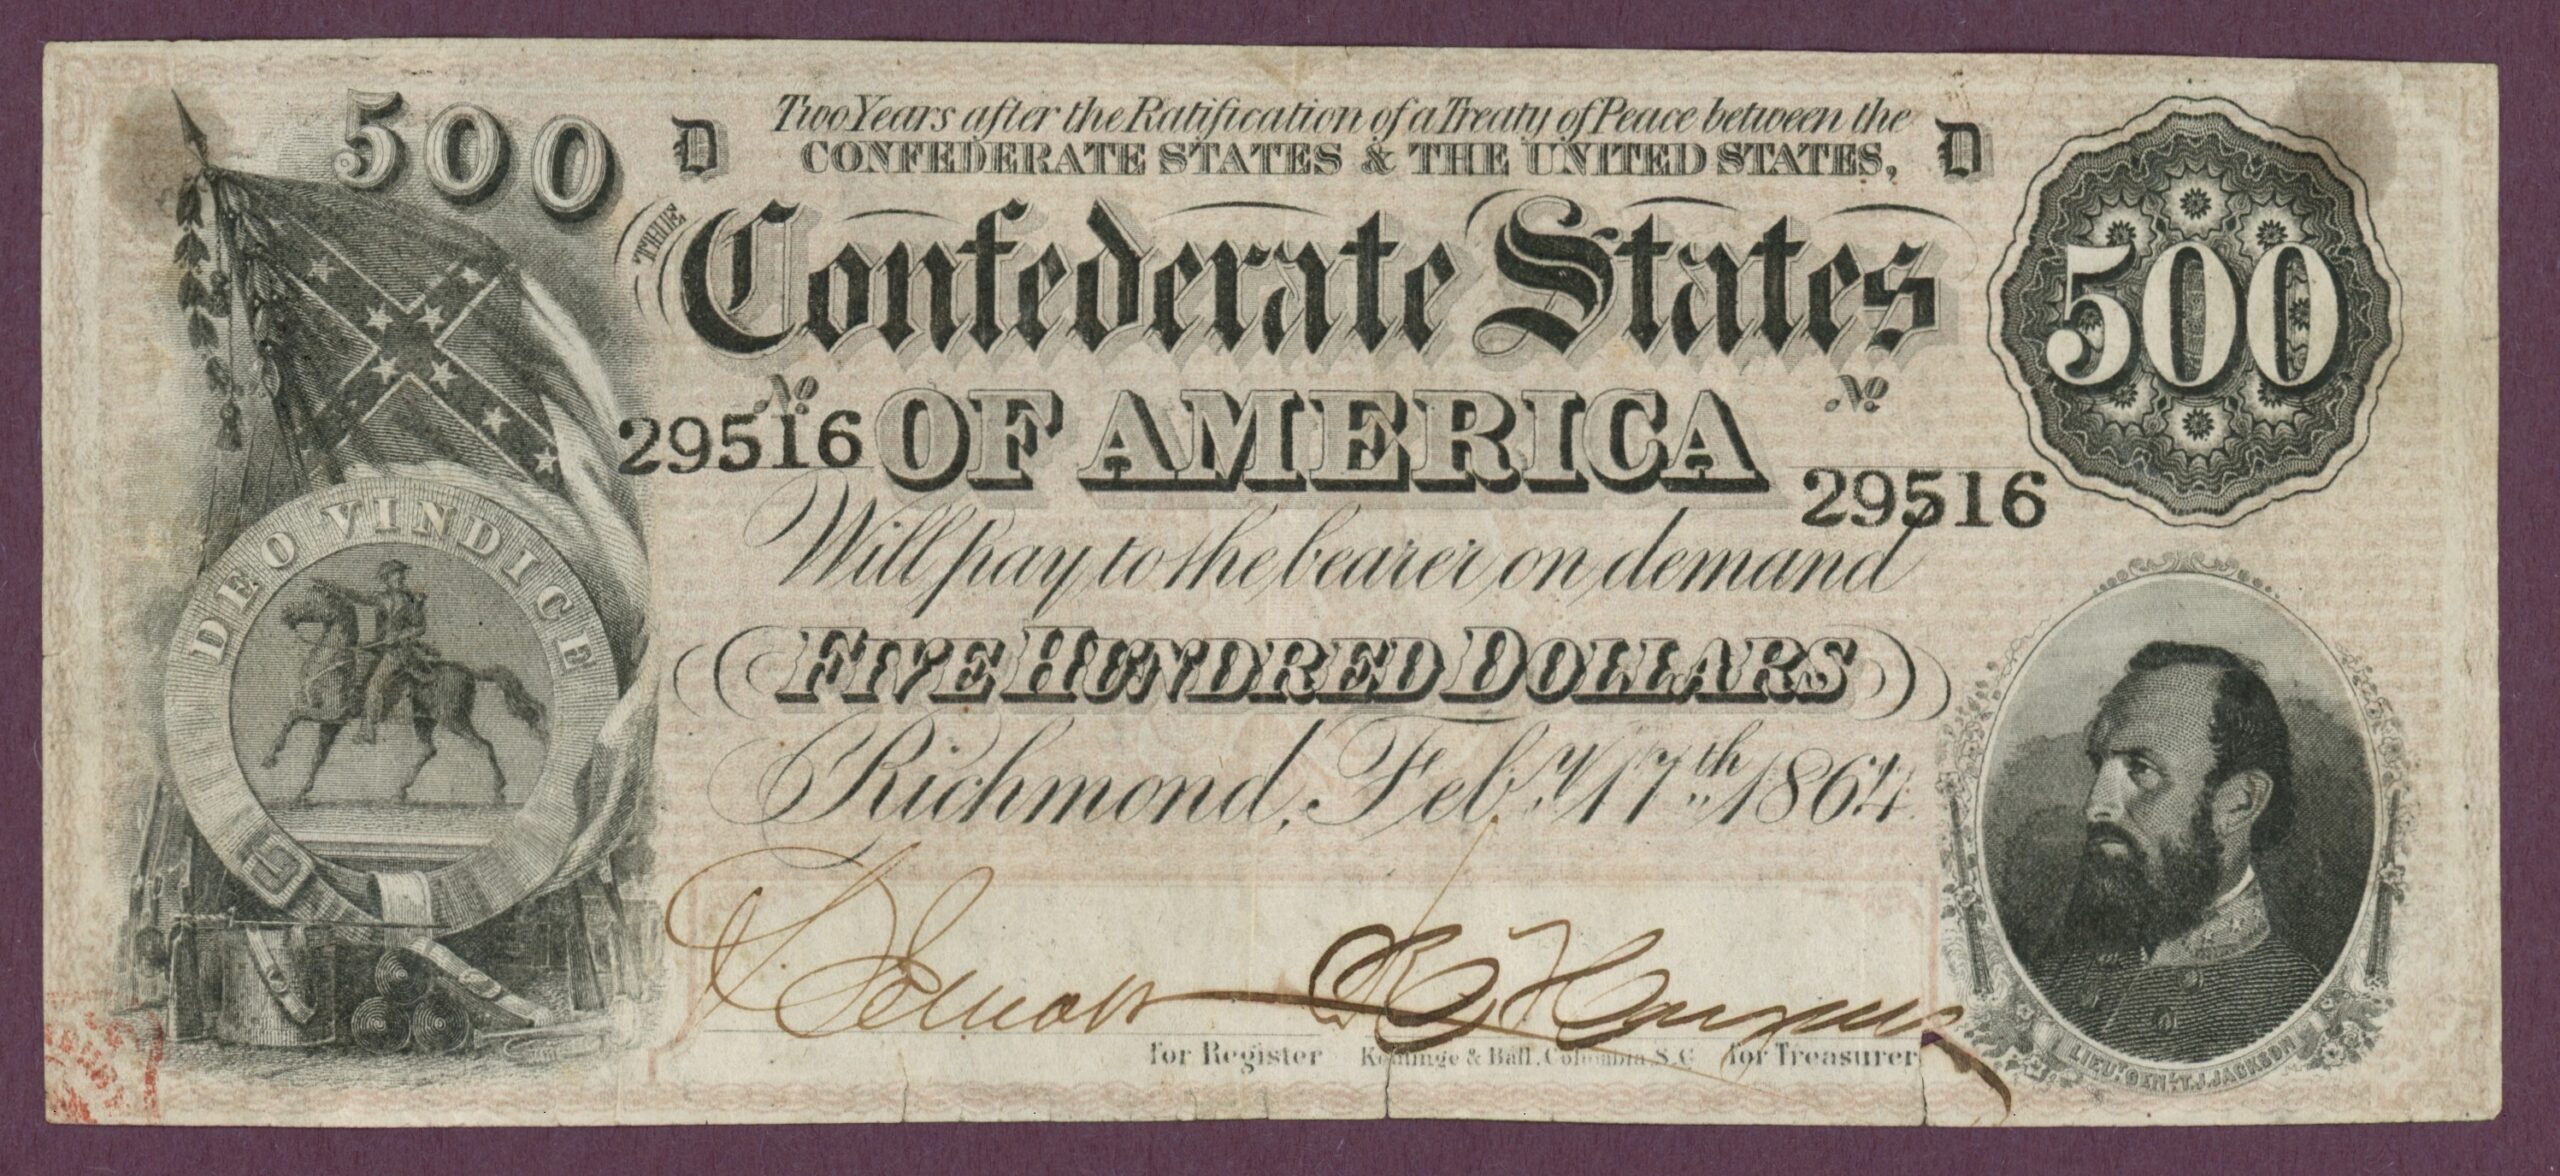 500
D
Two Years after the Ratification of a Treaty of Peace between the
CONFEDERATE STATES & THE UNITED STATES,
D
THE Confederate States
500
No
29516
OF AMERICA
No
29516
Will pay to the bearer on demand
FIVE HUNDRED DOLLARS
Richmond, Feby. 17th. 1864
DEO VINDICE
for Register
Keatinge & Ball, Columbia S.C
for Treasurer
LIEUT. GENL. T.J. JACKSON